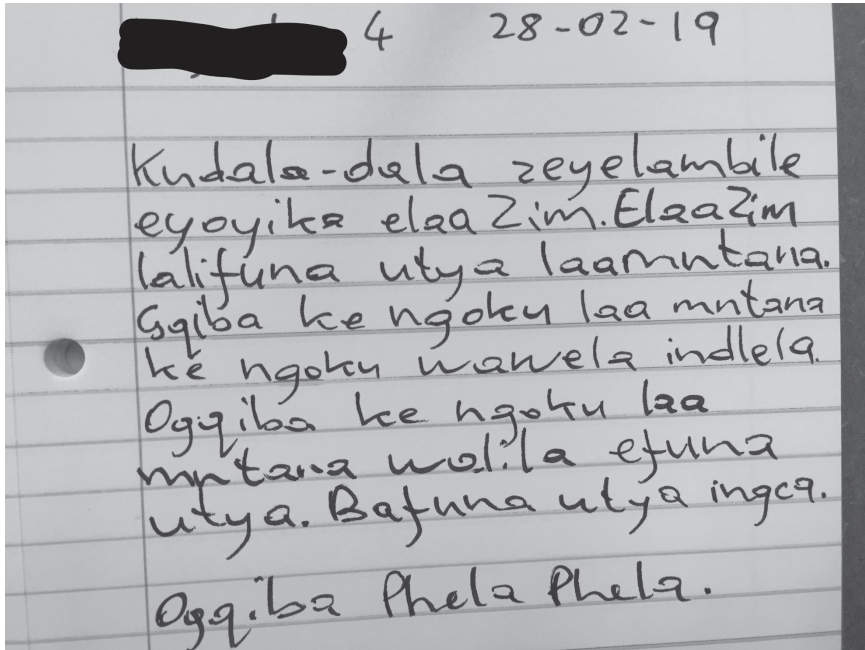 4 28-02-19
Kudala-dala zeyelambile
eyoyika elaa Zim. Elaa Zim
lalifuna utya laamntana.
Gqiba ke ngoku laa mntana
ke ngoku wawela indlela.
Ogqiba ke ngoku laa
mntana wolila efuna
utya. Bafuna utya ingca.
Ogqiba Phela Phela.